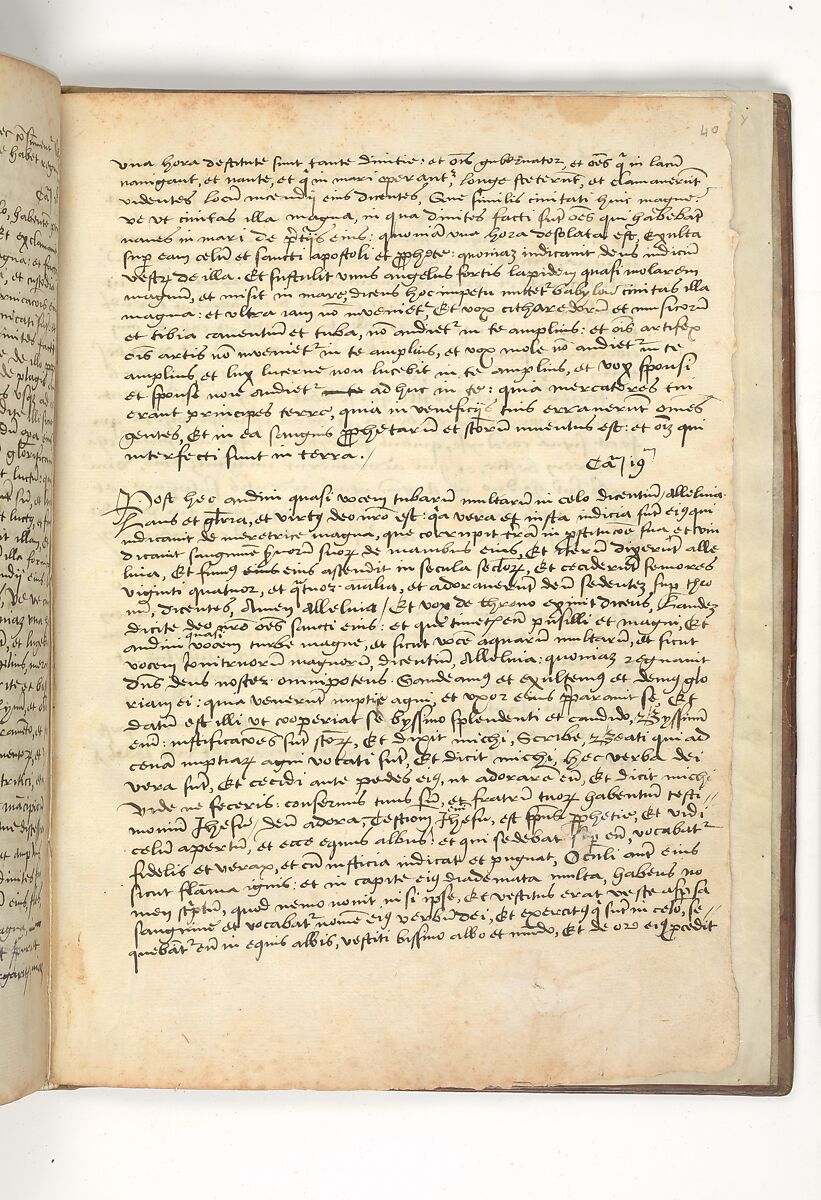 40
una hora destitute sunt tante divitie: et oĩs gubernator, et oẽs q̃ in lacũ
navigant, et naute, et q̃ in mari operant², longe steterũt, et clamaverũt
videntes locũ incendij eius dicentes, Que similis civitati huic magne.
ve ve civitas illa magna, in qua divites facti sũt oẽs qui habebãt
naves in mari de p̃tijs eius: quoniã una hora desolata est, Exulta
sup eam celũ et sancti apostoli et prophete: quoniaz iudicavit deus iudiciũ
vestrũ de illa. Et sustulit unus angelus fortis lapidem quasi molarem
magnũ, et misit in mare, dicens hoc impetu mittet² babylon civitas illa
magna: et ultra iam nõ inveniet², Et vox citharedorũ et musicorũ
et tibia canentiũ et tuba, nõ audiet² in te amplius: et oĩs artifex
oĩs artis nõ inveniet² in te amplius, et vox mole nõ audiet² in te
amplius, et lux lucerne non lucebit in te amplius, et vox sponsi
et sponse nõ audiet² ad huc in te: quia mercatores tui
erant principes terre, quia in veneficijs tuis erraverũt omẽs
gentes, Et in ea sanguis prophetarũ et sctorũ inventus est: et oĩz qui
interfecti sunt in terra./
Ca⁊ 19
Post hec audivi quasi vocem tubarũ multarũ in celo dicentiũ Alleluia.
Laus et glr̃ia, et virtꝯ deo nr̃o est: q̃a vera et iusta iudicia sũt eiꝯ qui
iudicavit de meretrice magna, que corrupit terã in prostituc̃oe sua et vin
dicavit sanguinẽ servorũ suoꝝ de manibus eius, Et iterũ dixerũt alle
luia, Et fumꝯ eius ascendit in secula secloꝝ, Et ceciderũt seniores
viginti quatuor, et q̃tuor aĩalia, et adoraverũt deũ sedentez sup thro
nũ, dicentes, Amen Alleluia/ Et vox de throno exivit dicens, Laudez
dicite deo nr̃o oẽs sancti eius: et qui timetis eum pusilli et magni, Et
audivi quasi vocem turbe magne, et sicut vocẽ aquarũ multarũ, et sicut
vocem tonitruorũ magnorũ, dicentiũ, Alleluia: quoniaz regnavit
dñs deus noster omnipotens. Gaudeamꝯ et exultemꝯ et demꝯ glo
riam ei: quia venerũt nuptie agni, et uxor eius p̃paravit se, Et
datũ est illi ut cooperiat se byssino splendenti et candido, Byssinũ
enĩ: iustificac̃oes sũt sctoꝝ, Et dixit michi, Scribe, Beati qui ad
cenã nuptiarz agni vocati sũt, Et dicit michi, hec verba dei
vera sũt, Et cecidi ante pedes eiꝯ, ut adorarẽ eũ, Et dicit michi
Vide ne feceris: conservus tuus sũ, et fratrũ tuoꝝ habentiũ testi//
moniũ Jhesu/ deũ adora, Testioniũ enĩ Jhesu, est spũs prophetie, Et vidi
celũ apertũ, et ecce equus albus: et qui sedebat sup eũ, vocabat²
fidelis et verax, et cũ iusticia iudicat et pugnat, Oculi aut eius
sicut flãma ignis: et in capite eiꝯ diademata multa, habens no
men sc̃ptũ, quod nemo novit ni si ipse, Et vestitus erat veste asp̃sa
sanguine et vocabat² nomẽ eiꝯ verbũ dei, Et exercitꝯ q̃ sũt in celo, se//
quebãt² eũ in equis albis, vestiti bissino albo et mũdo, Et de ore eiꝯ procedit